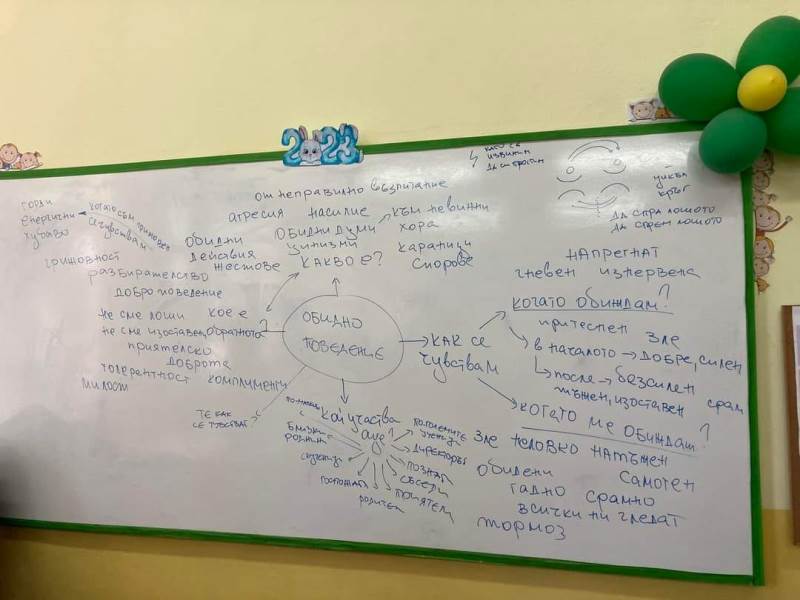 2023
КАТО СЕ
ИЗВИНИ
ДА СИ ПРОСТИМ
КРЪГ
ДА СПРА ЛОШОТО
ДА СПРЕМ ЛОШОТО
ГОРДИ
ЕНЕРГИЧНИ
ХУБАВО
СЕ ЧУВСТВАМ
ГРИЖОВНОСТ
РАЗБИРАТЕЛСТВО
ДОБРО ПОВЕДЕНИЕ
НЕ СМЕ ЛОШИ
НЕ СМЕ ИЗОСТАВЕНИ
ПРИЯТЕЛСКО
ДОБРОТА
ТОЛЕРАНТНОСТ КОМПЛИМЕНТИ
МИЛОСТ
КОЕ Е
ОБРАТНОТО?
ТЕ КАК
СЕ ЧУВСТВАТ
ОТ НЕПРАВИЛНО ВЪЗПИТАНИЕ
АГРЕСИЯ НАСИЛИЕ
ОБИДНИ ДУМИ
ЦИНИЗМИ
КЪМ НЕВИННИ
ХОРА
ОБИДНИ
ДЕЙСТВИЯ
ЖЕСТОВЕ
КАКВО Е?
КАРАНИЦИ
СПОРОВЕ
ОБИДНО
ПОВЕДЕНИЕ
КАК СЕ
ЧУВСТВАМ
НАПРЕГНАТ
ГНЕВЕН ИЗНЕРВЕН
КОГАТО ОБИЖДАМ?
ПРИТЕСНЕН ЗЛЕ
В НАЧАЛОТО → ДОБРЕ, СИЛЕН
ПОСЛЕ → БЕЗСИЛЕН СРАМ
ТЪЖЕН, ИЗОСТАВЕН
КОГАТО МЕ ОБИЖДАТ?
ЗЛЕ НЕЛОВКО НАТЪЖЕН
ОБИДЕНИ САМОТЕН
ГАДНО СРАМНО
ВСИЧКИ НИ ГЛЕДАТ
ТОРМОЗ
КОЙ УЧАСТВА
ОЩЕ?
БЛИЗКИ
РОДНИНИ
ГОСПОЖАТА
РОДИТЕЛИ
ПРИЯТЕЛИ
СЪСЕДИ
ПОЗНАТИ
ДИРЕКТОРЪТ
ПО-ГОЛЕМИТЕ
УЧЕНИЦИ